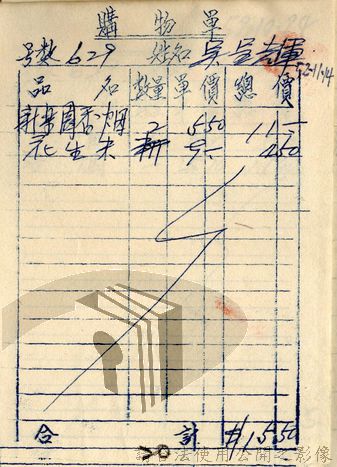 購物單
号数 629 姓名 吳呈輝
52-11-14
品名 数量 單價 總價
新樂園香烟 2 550 11-
花生米 9- 450
合計 #1550
20
使用公開之影像